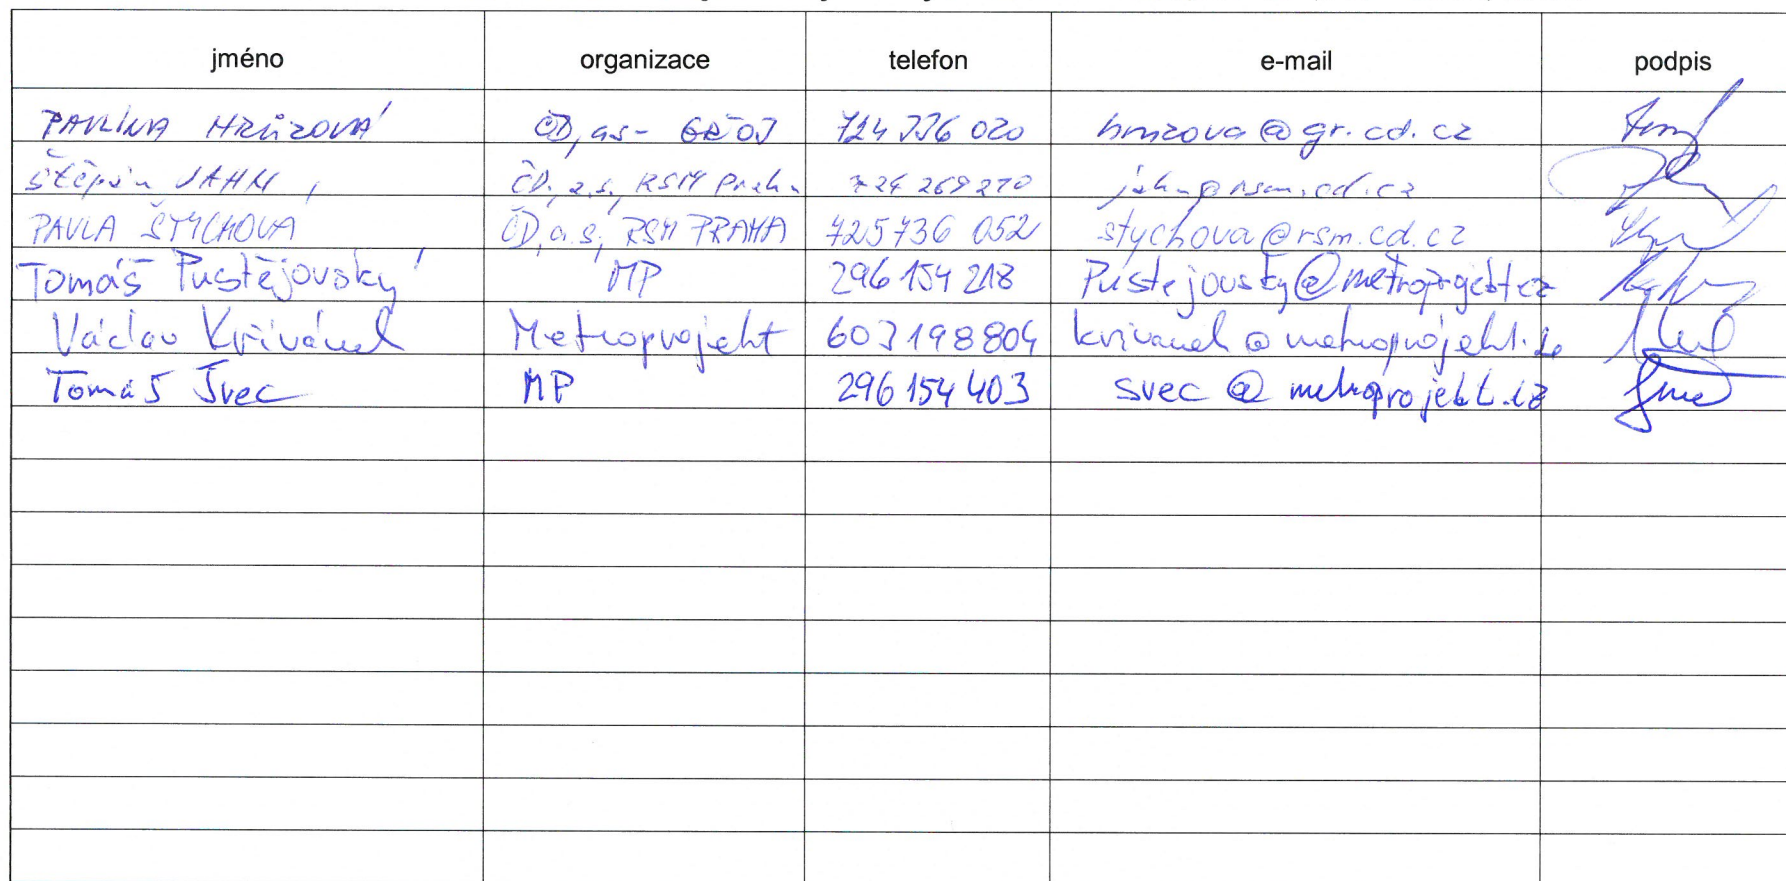 jméno organizace telefon e-mail podpis
PAVLÍNA HRŮZOVÁ ČD, a.s - GŘ OJ 724 336 020 hruzova@gr.cd.cz
Štěpán JAHN, ČD, a.s, RSM Praha 724 269 270 jahn@rsm.cd.cz
PAVLA ŠTYCHOVÁ ČD, a.s, RSM PRAHA 725 736 052 stychova@rsm.cd.cz
Tomáš Pustějovský MP 296 154 218 Pustejovsky@metroprojekt.cz
Václav Křivánek Metroprojekt 603 198 804 krivanek@metroprojekt.cz
Tomáš Švec MP 296 154 403 svec@metroprojekt.cz